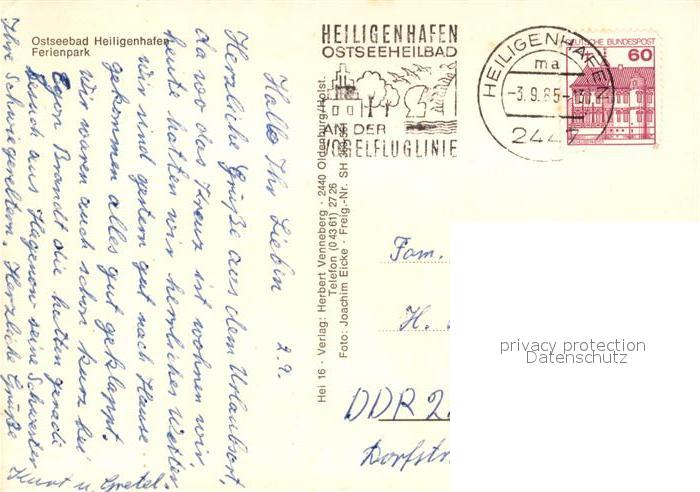 Ostseebad Heiligenhafen
Ferienpark
Hallo Ihr Lieben 2.9.
Herzliche Grüße aus dem Urlaubsort,
da wo das Kreuz ist wohnen wir
heute hatten wir herrliches Wetter
wir sind gestern gut nach Hause
gekommen alles gut geklappt.
Wir waren auch schon kurz bei
Egon Brandt die hatten gerade
Besuch aus Hagenow seine Schwester
Ihre Schwiegereltern. Herzliche Grüße
Kurt u. Gretel.
Hei 16 · Verlag: Herbert Venneberg · 2440 Oldenburg/Holst.
Telefon (0 43 61) 27 26
Foto: Joachim Eicke · Freig.-Nr. SH
HEILIGENHAFEN
OSTSEEHEILBAD
AN DER
VOGELFLUGLINIE
HEILIGENHAFEN
ma
-3.9.85-
2447
DEUTSCHE BUNDESPOST
60
Fam.
H.
DDR 2
Dorfstr
privacy protection
Datenschutz